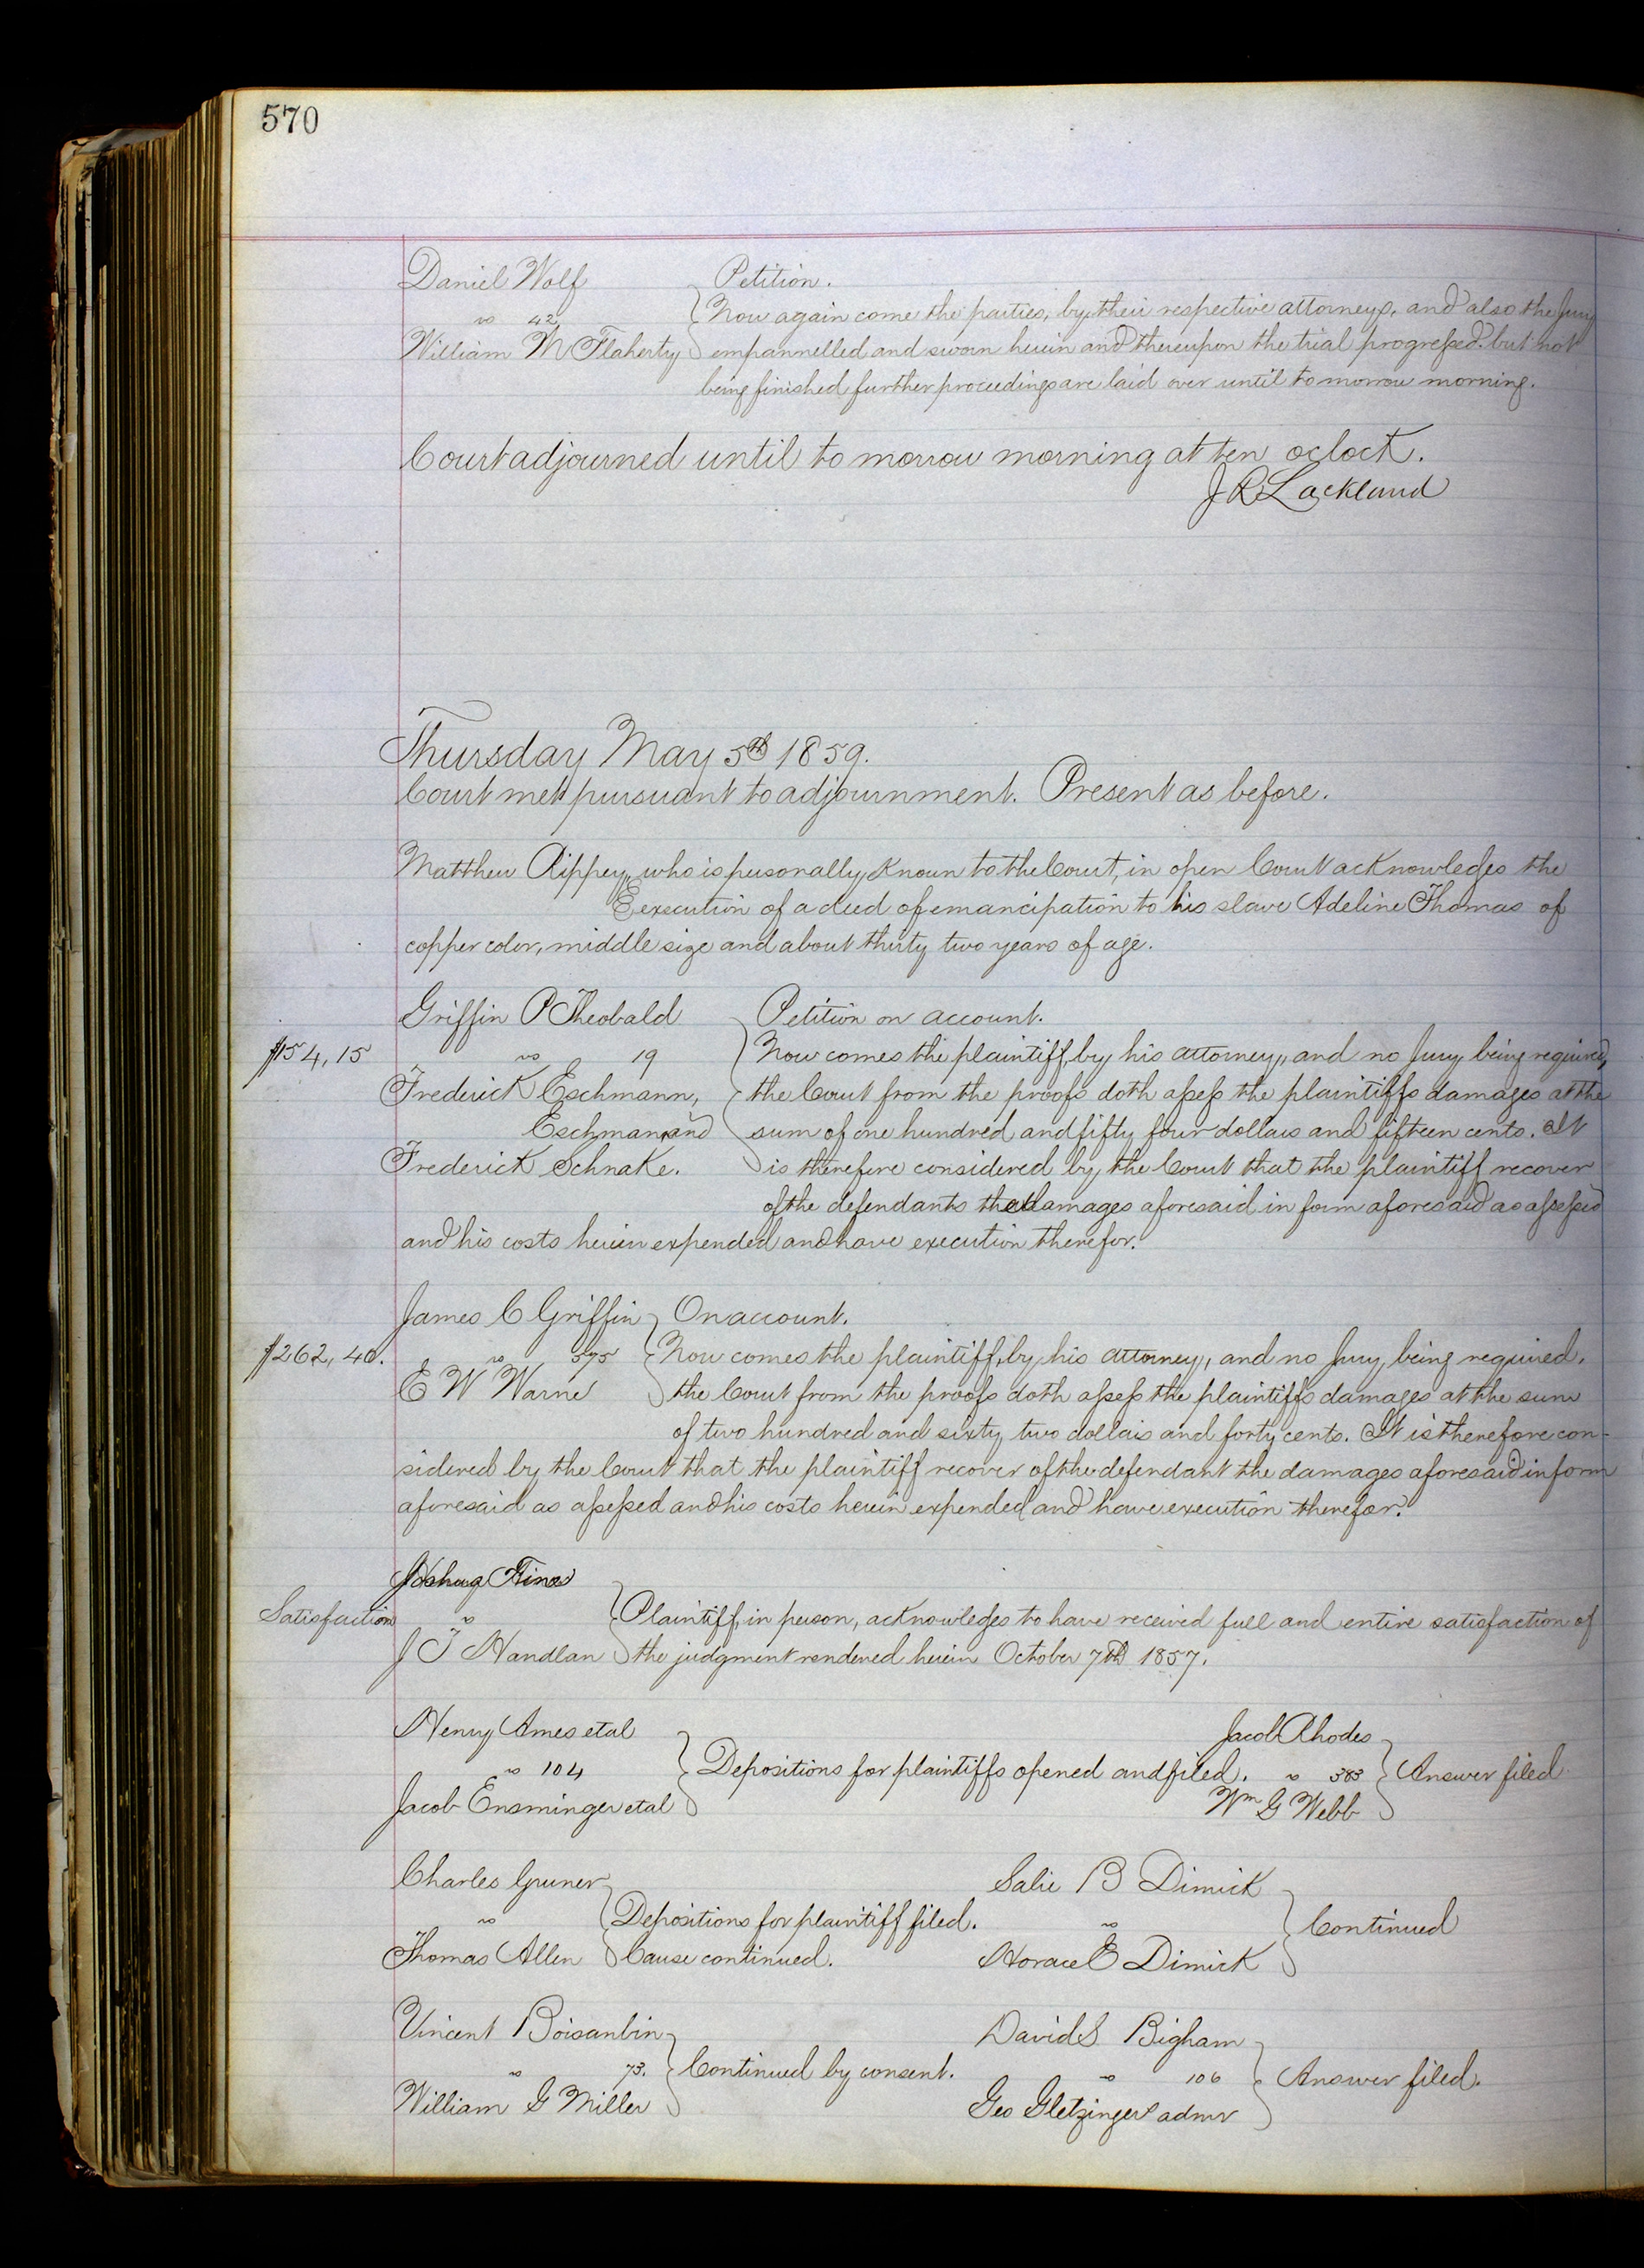 570
Daniel Wolf Petition.
vs 42 Now again come the parties, by their respective attorneys, and also the Jury
William M Flaherty empannelled and sworn herein and thereupon the trial progressed but not
being finished further proceedings are laid over until to morrow morning.
Court adjourned until to morrow morning at ten oclock.
J R Lackland
Thursday May 5th 1859.
Court met pursuant to adjournment. Present as before.
Matthew Rippey, who is personally known to the Court, in open Court acknowledges the
Execution of a deed of emancipation to his slave Adeline Thomas of
copper color, middle size and about thirty two years of age.
Griffin P Theobald Petition on account.
$154,15 vs 19 Now comes the plaintiff, by his attorney, and no Jury being required,
Frederick Eschmann, the Court from the proofs doth assess the plaintiffs damages at the
Eschmann and sum of one hundred and fifty four dollars and fifteen cents. It
Frederick Schnake. is therefore considered by the Court that the plaintiff recover
of the defendants the damages aforesaid in form aforesaid as assessed
and his costs herein expended and have execution therefor.
James C Griffin On account.
$262,40. vs 575 Now comes the plaintiff, by his attorney, and no Jury being required,
E W Warne the Court from the proofs doth assess the plaintiffs damages at the sum
of two hundred and sixty two dollars and forty cents. It is therefore con-
sidered by the Court that the plaintiff recover of the defendant the damages aforesaid in form
aforesaid as assessed and his costs herein expended and have execution therefor.
Satisfaction vs Plaintiff, in person, acknowledges to have received full and entire satisfaction of
J T Handlan the judgment rendered herein October 7th 1857.
Henry Ames et al Jacob Rhodes
vs 104 Depositions for plaintiffs opened and filed. vs 383 Answer filed
Jacob Ensminger et al Wm G Webb
Charles Gruner Salie B Dimick
vs Depositions for plaintiff filed. vs Continued
Thomas Allen Cause continued. Horace E Dimick
Vincent Boisaubin David S Bigham
vs 73. Continued by consent. vs 106 Answer filed.
William G Miller Geo Gletzinger admr